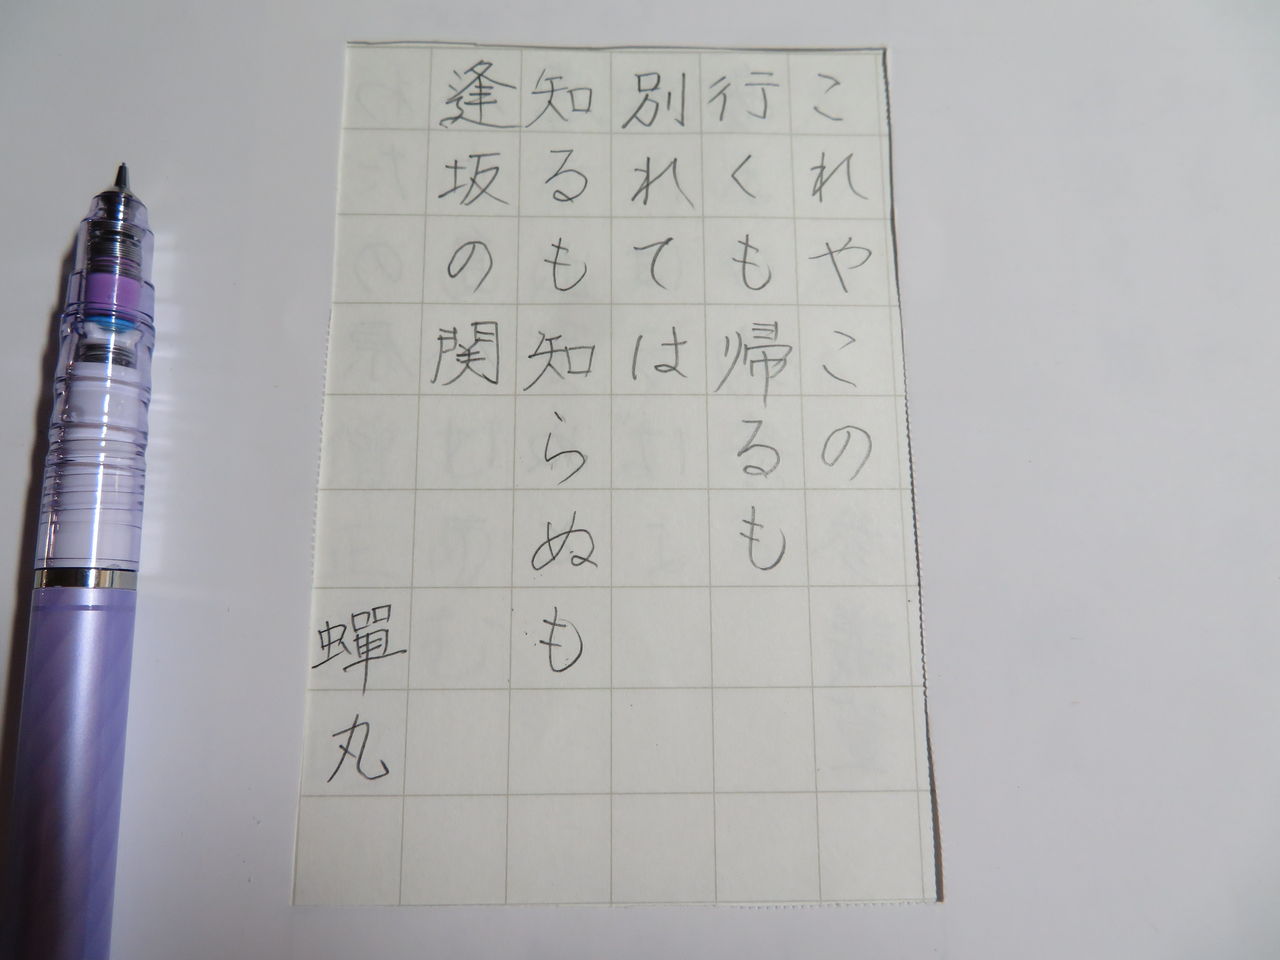 これやこの
行くも帰るも
別れては
知るも知らぬも
逢坂の関
蟬丸